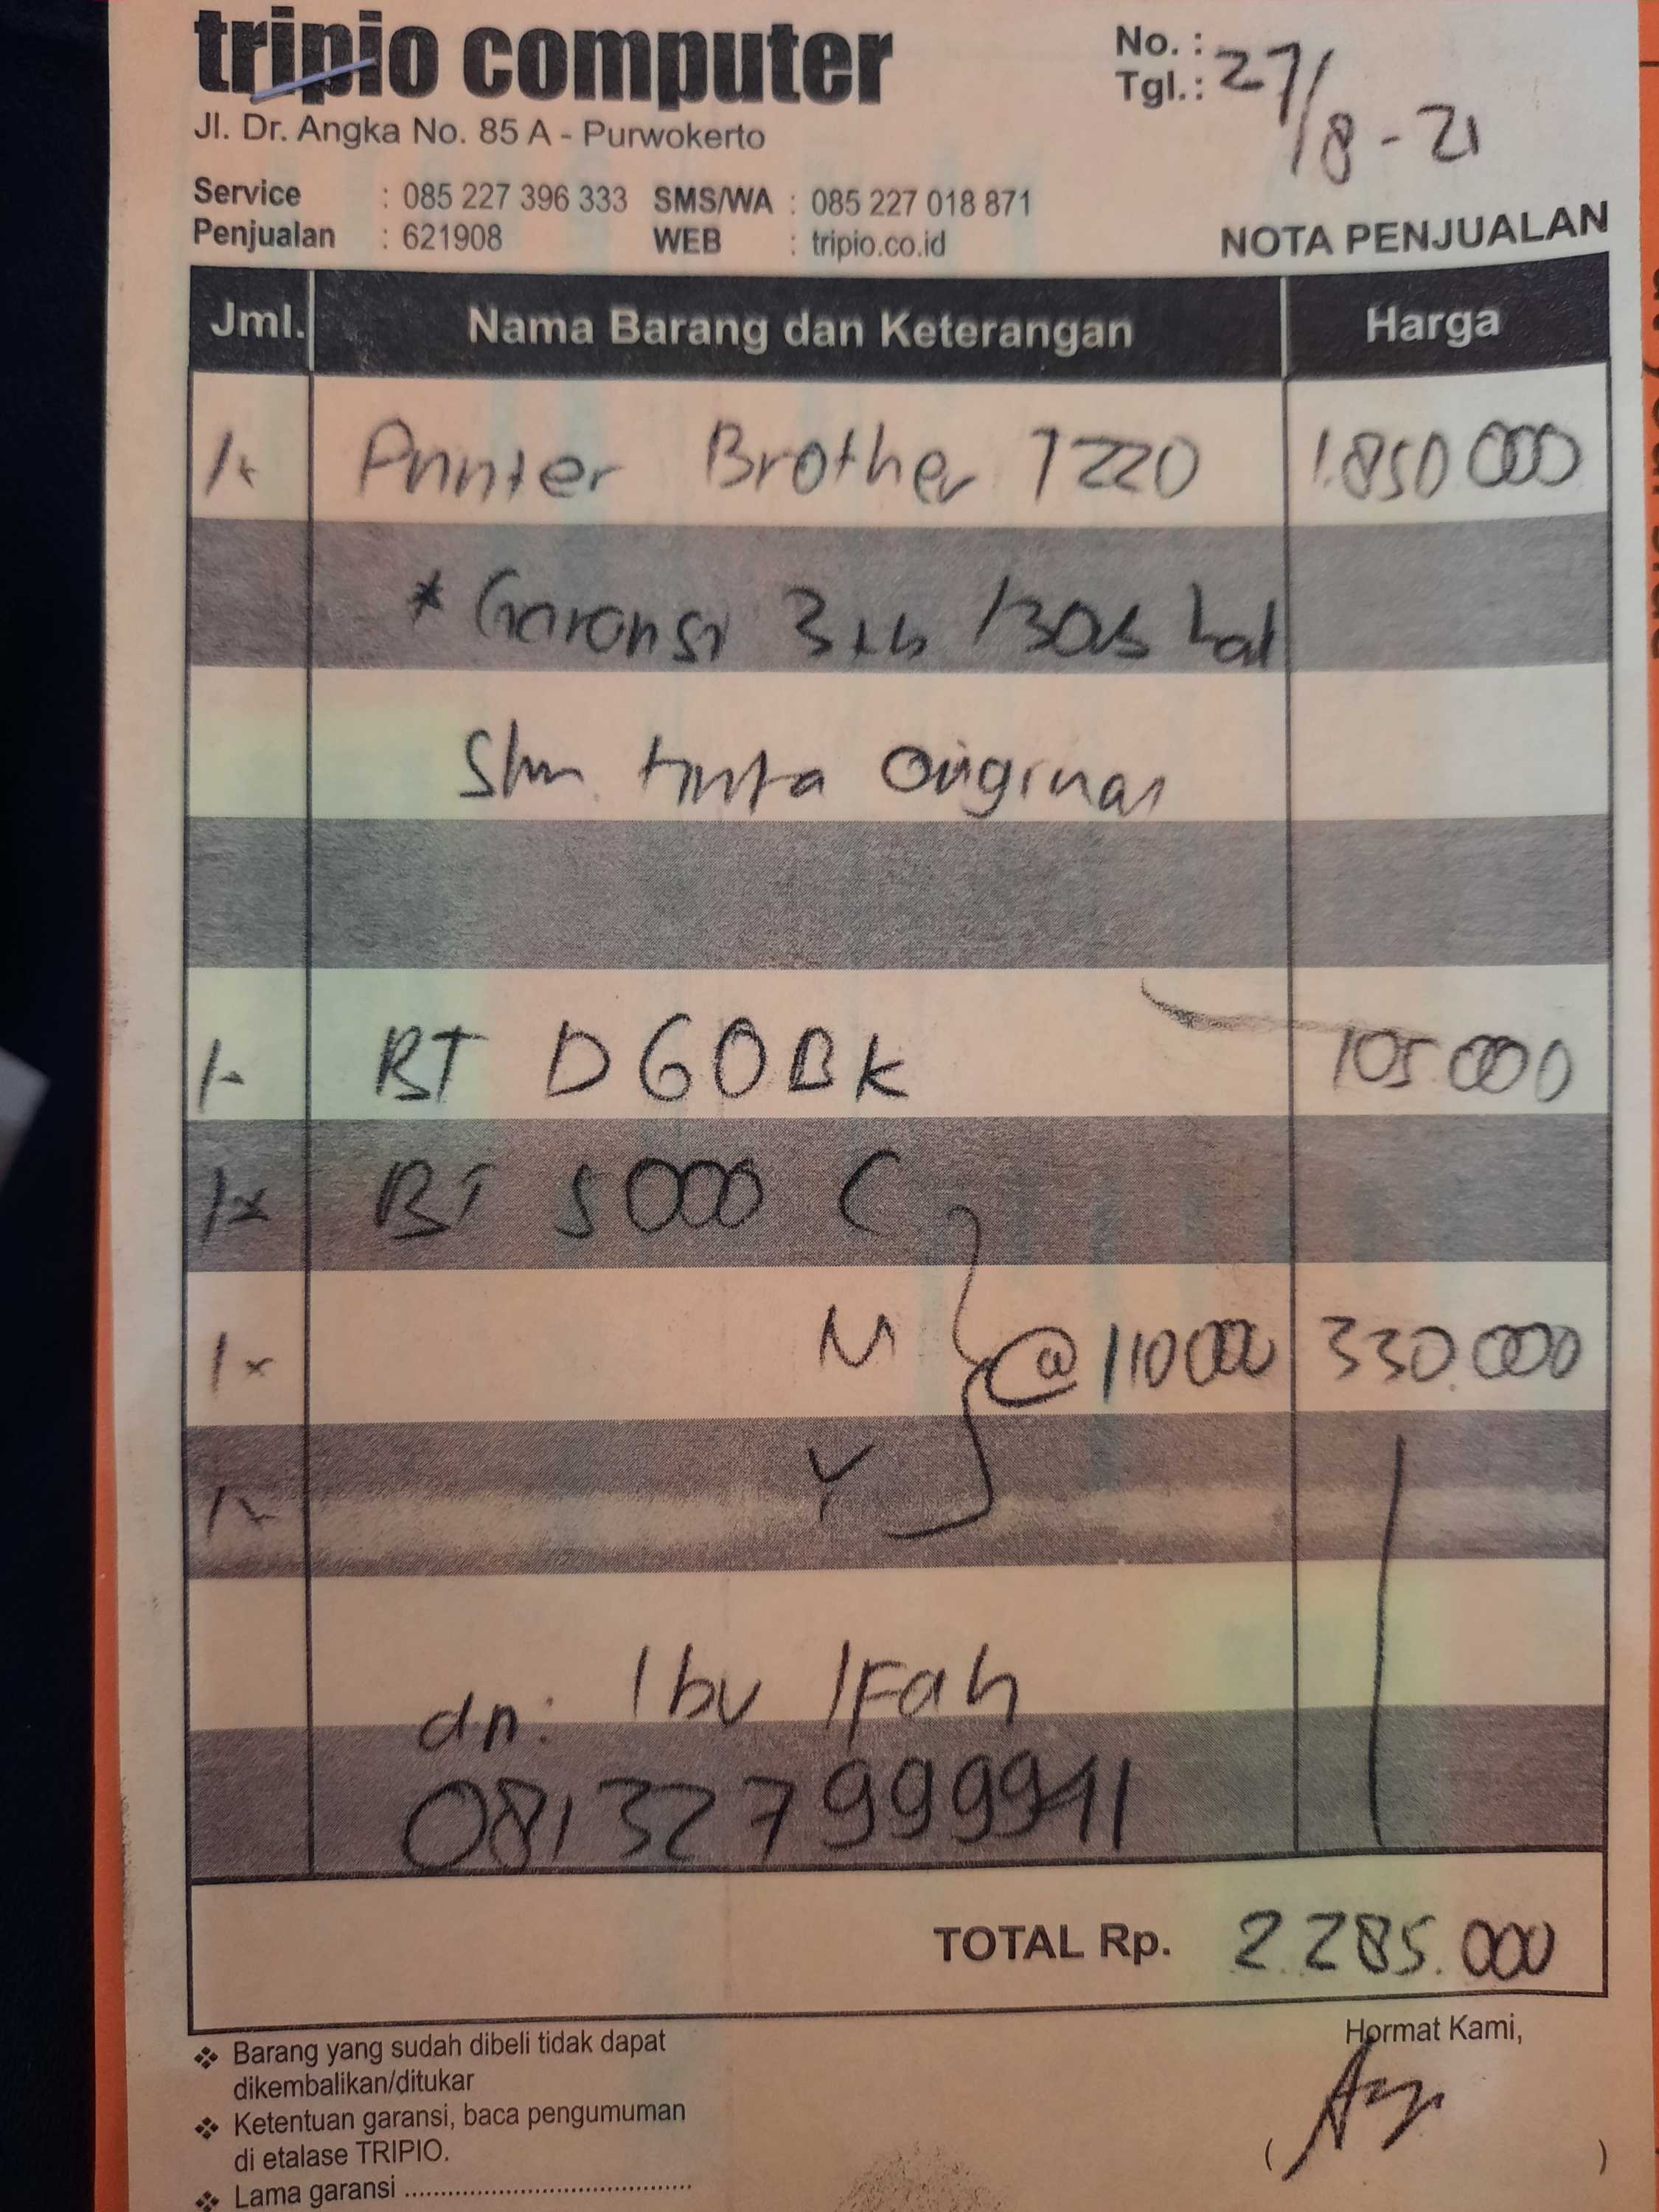 tripio computer
Jl. Dr. Angka No. 85 A - Purwokerto
No. :
Tgl.: 27/8 - 21
Service : 085 227 396 333 SMS/WA : 085 227 018 871
Penjualan : 621908 WEB : tripio.co.id
NOTA PENJUALAN
Jml. Nama Barang dan Keterangan Harga
1x Printer Brother T220 1.850.000
* Garansi 3th
tinta Original
1x BT D60BK 105.000
1x BT 5000 C
1x M @ 110000 330.000
1x Y
an: Ibu IFah
TOTAL Rp. 2.285.000
Hormat Kami,
❖ Barang yang sudah dibeli tidak dapat
dikembalikan/ditukar
❖ Ketentuan garansi, baca pengumuman
di etalase TRIPIO.
❖ Lama garansi ........................................
( )